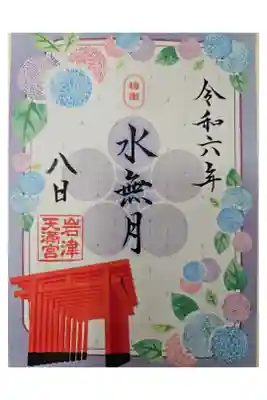 令和六年
水無月
八日
岩津
天満宮